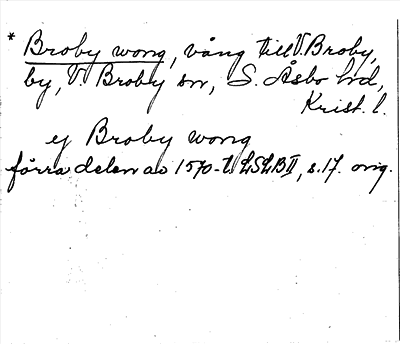 * Broby wong, vång till V. Broby,
by, V. Broby sn, S. Åsbo hd,
Krist. l.
ej Broby wong
förra delen av 1570-t. LSLB II, s. 17. orig.